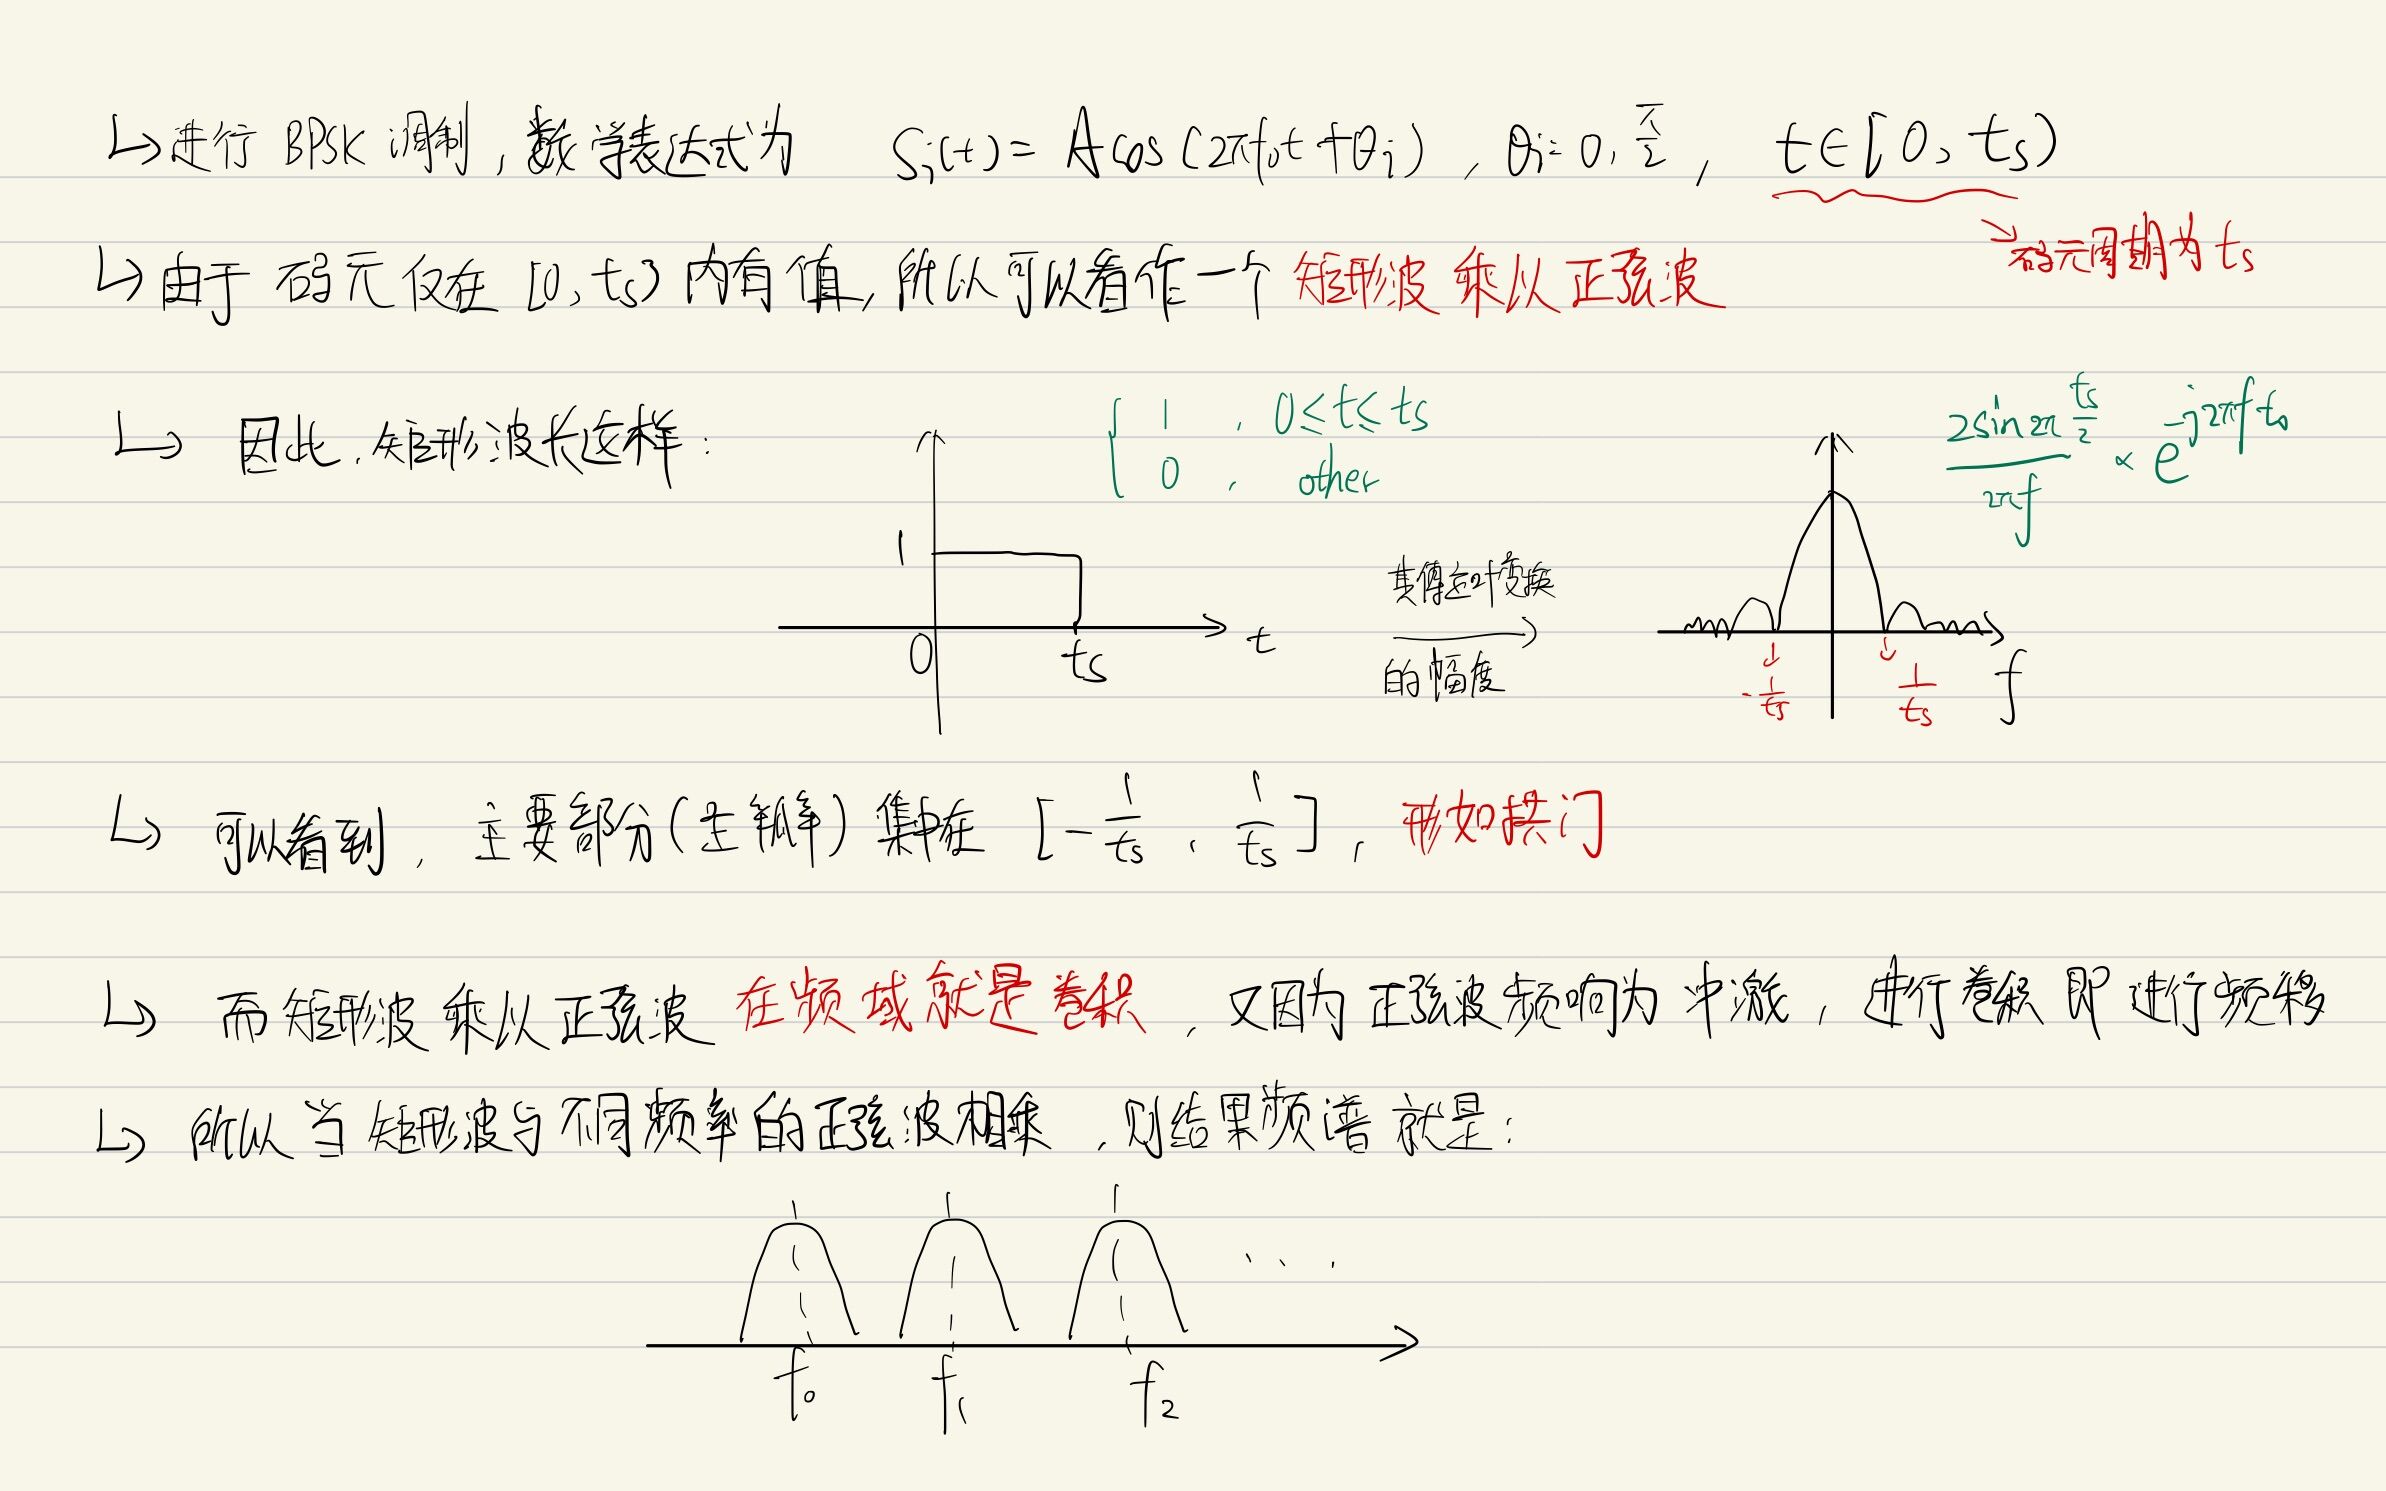 ↳ 进行 BPSK 调制, 数学表达式为 Si(t) = A cos (2πf₀t + θi), θi = 0, π/2, t∈[0, ts)
→码元周期为 ts
↳ 由于 码元仅在 [0, ts) 内有值, 所以可以看作一个 矩形波 乘以 正弦波
↳ 因此, 矩形波长这样:
{ 1, 0≤t≤ts
0, other
2sin2π ts/2 / 2πf × e^-j2πf t₀
1
0 ts t
其傅立叶变换
的幅度
-1/ts 1/ts f
↳ 可以看到, 主要部分(主瓣) 集中在 [-1/ts, 1/ts], 形如拱门
↳ 而矩形波 乘以 正弦波 在频域就是卷积, 又因为 正弦波频响为 冲激, 进行卷积 即 进行频移
↳ 所以 当 矩形波与不同频率的正弦波相乘, 则结果频谱 就是:
...
f₀ f₁ f₂